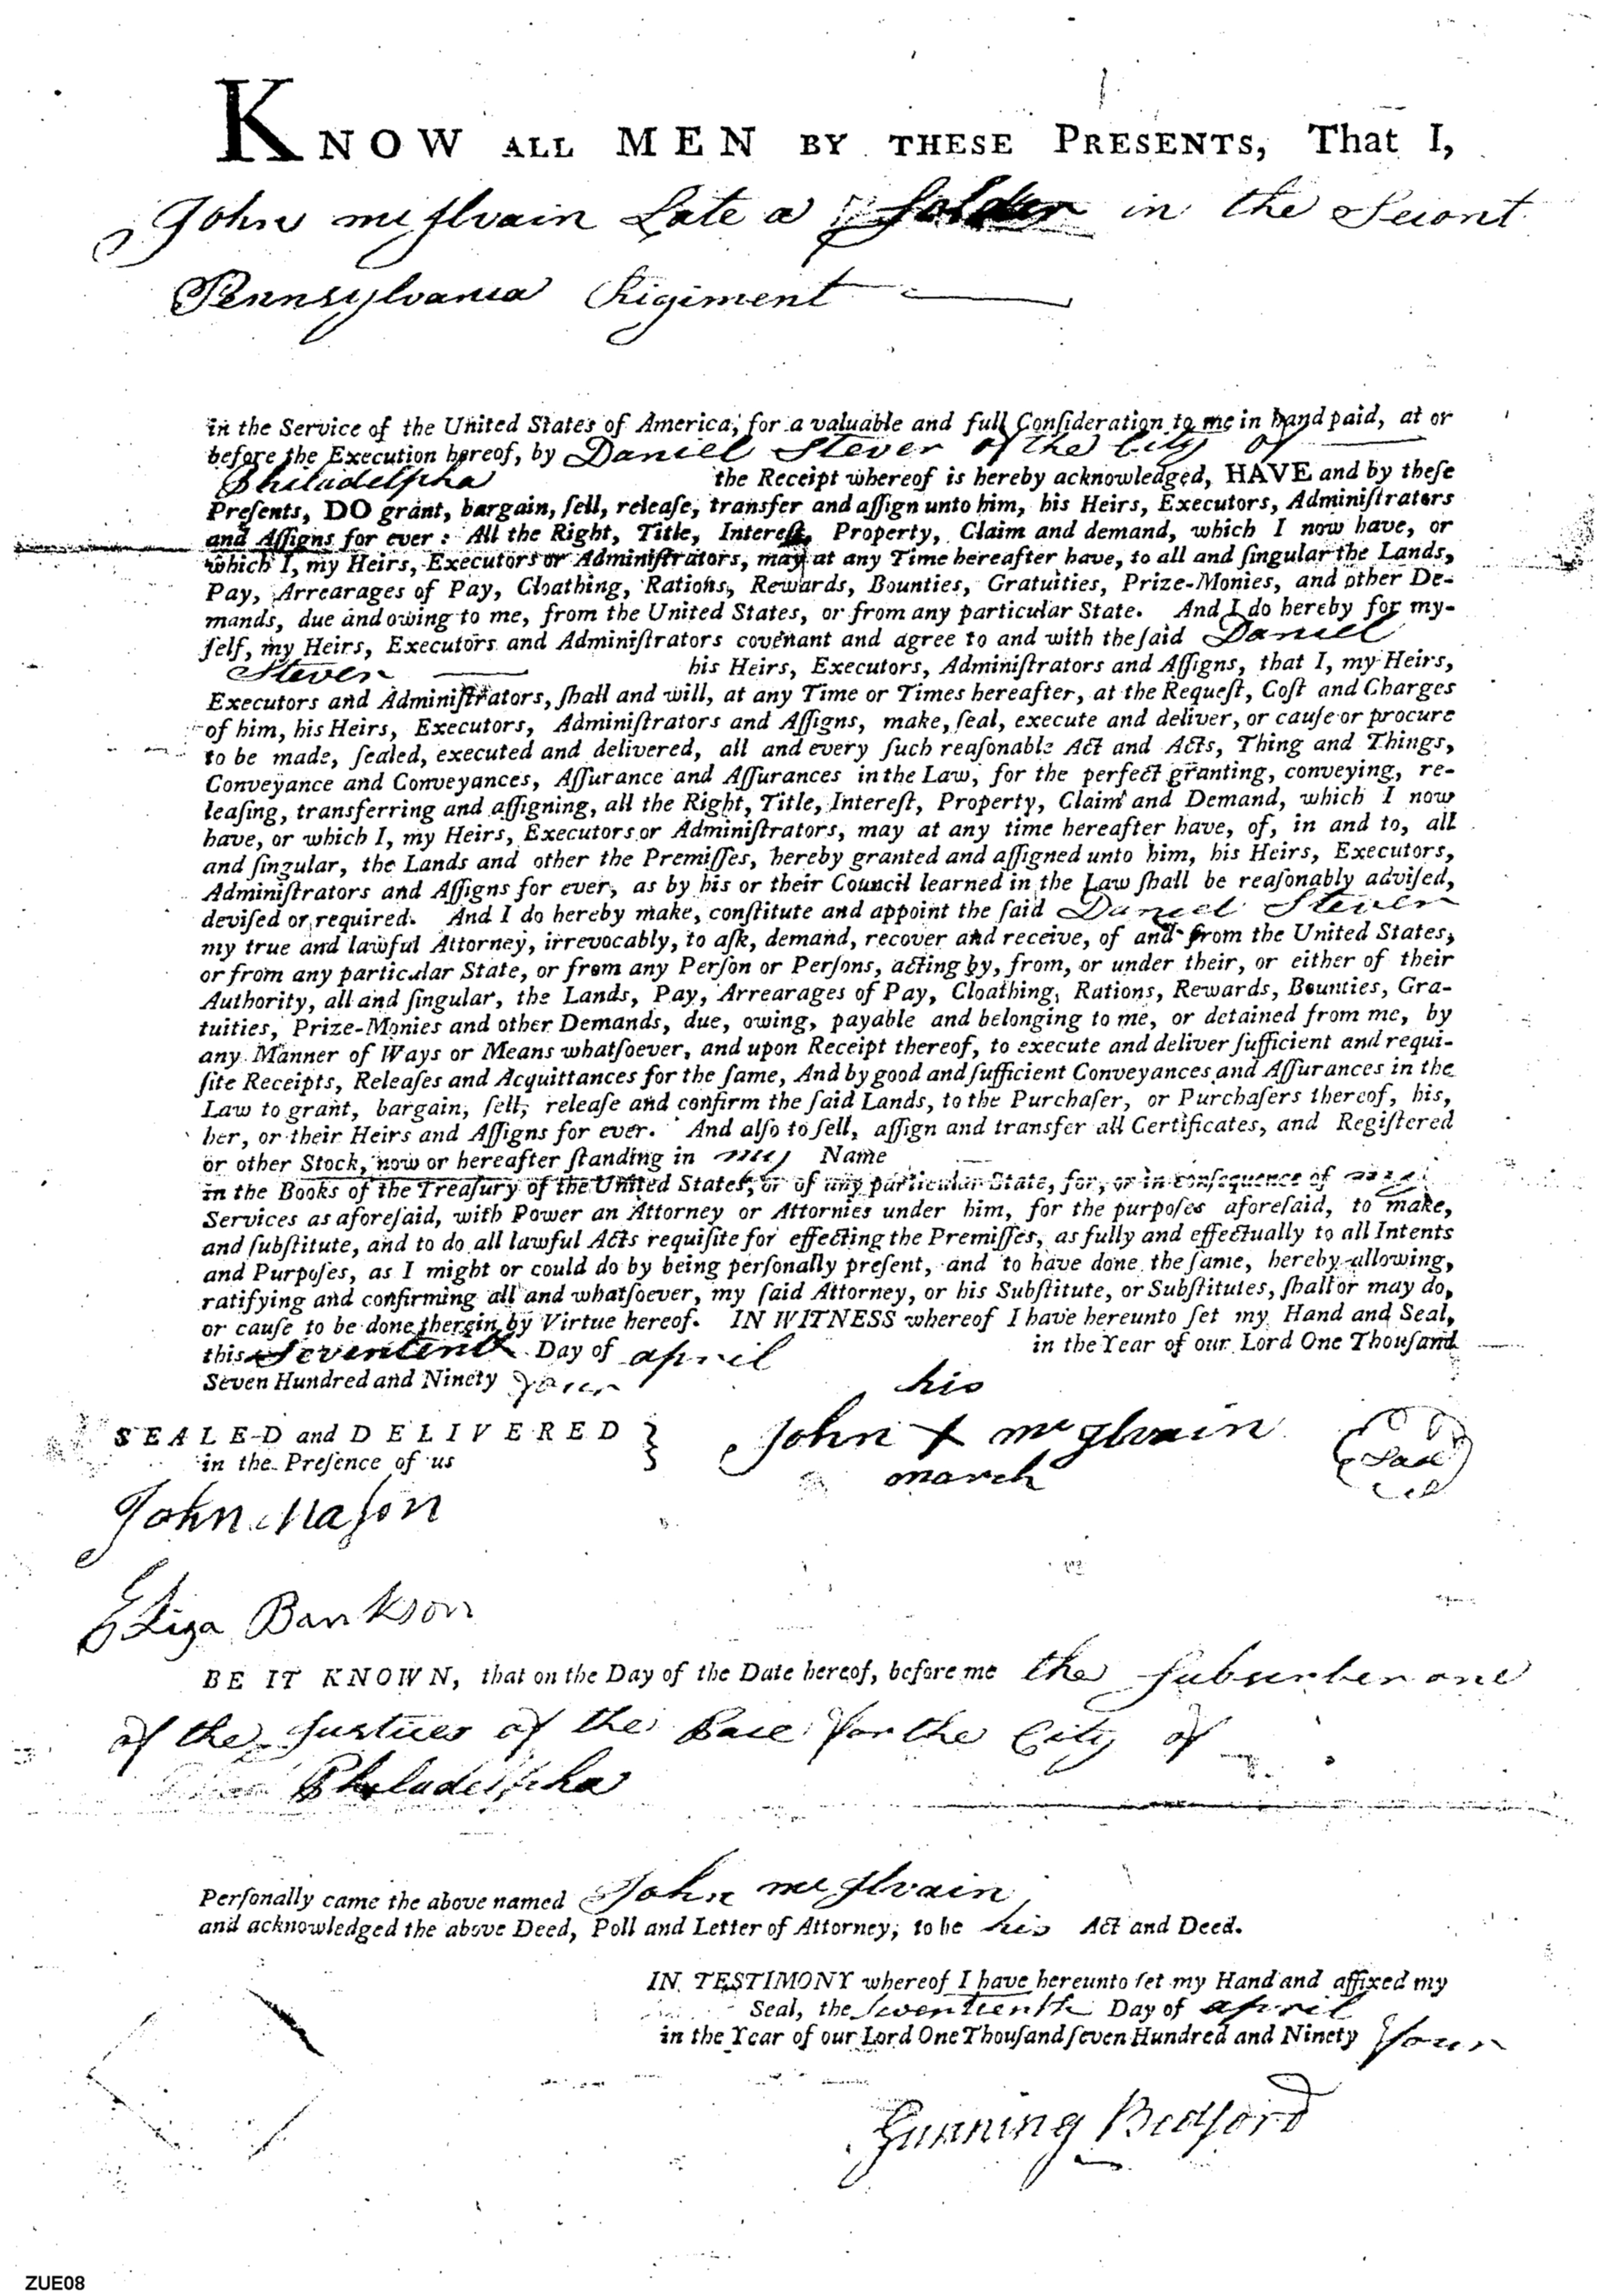 KNOW ALL MEN BY THESE PRESENTS, That I,
John mc Ilvain Late a Solder in the Seiont
Pennsylvania Rigiment
in the Service of the United States of America, for a valuable and full Conſideration to me in hand paid, at or
before the Execution hereof, by Daniel Stever of the City of
Philadelpha the Receipt whereof is hereby acknowledged, HAVE and by theſe
Preſents, DO grant, bargain, ſell, releaſe, transfer and aſſign unto him, his Heirs, Executors, Adminiſtrators
and Aſſigns for ever: All the Right, Title, Intereſt, Property, Claim and demand, which I now have, or
which I, my Heirs, Executors or Adminiſtrators, may at any Time hereafter have, to all and ſingular the Lands,
Pay, Arrearages of Pay, Cloathing, Rations, Rewards, Bounties, Gratuities, Prize-Monies, and other De-
mands, due and owing to me, from the United States, or from any particular State. And I do hereby for my-
ſelf, my Heirs, Executors and Adminiſtrators covenant and agree to and with the ſaid Daniel
Steven his Heirs, Executors, Adminiſtrators and Aſſigns, that I, my Heirs,
Executors and Adminiſtrators, ſhall and will, at any Time or Times hereafter, at the Requeſt, Coſt and Charges
of him, his Heirs, Executors, Adminiſtrators and Aſſigns, make, ſeal, execute and deliver, or cauſe or procure
to be made, ſealed, executed and delivered, all and every ſuch reaſonable Act and Acts, Thing and Things,
Conveyance and Conveyances, Aſſurance and Aſſurances in the Law, for the perfect granting, conveying, re-
leaſing, transferring and aſſigning, all the Right, Title, Intereſt, Property, Claim and Demand, which I now
have, or which I, my Heirs, Executors or Adminiſtrators, may at any time hereafter have, of, in and to, all
and ſingular, the Lands and other the Premiſſes, hereby granted and aſſigned unto him, his Heirs, Executors,
Adminiſtrators and Aſſigns for ever, as by his or their Council learned in the Law ſhall be reaſonably adviſed,
deviſed or required. And I do hereby make, conſtitute and appoint the ſaid Daniel Steven
my true and lawful Attorney, irrevocably, to aſk, demand, recover and receive, of and from the United States,
or from any particular State, or from any Perſon or Perſons, acting by, from, or under their, or either of their
Authority, all and ſingular, the Lands, Pay, Arrearages of Pay, Cloathing, Rations, Rewards, Bounties, Gra-
tuities, Prize-Monies and other Demands, due, owing, payable and belonging to me, or detained from me, by
any Manner of Ways or Means whatſoever, and upon Receipt thereof, to execute and deliver ſufficient and requi-
ſite Receipts, Releaſes and Acquittances for the ſame, And by good and ſufficient Conveyances and Aſſurances in the
Law to grant, bargain, ſell, releaſe and confirm the ſaid Lands, to the Purchaſer, or Purchaſers thereof, his,
her, or their Heirs and Aſſigns for ever. And alſo to ſell, aſſign and transfer all Certificates, and Regiſtered
or other Stock, now or hereafter ſtanding in my Name
in the Books of the Treaſury of the United States, or of any particular State, for, or in conſequence of my
Services as aforeſaid, with Power an Attorney or Attornies under him, for the purpoſes aforeſaid, to make,
and ſubſtitute, and to do all lawful Acts requiſite for effecting the Premiſſes, as fully and effectually to all Intents
and Purpoſes, as I might or could do by being perſonally preſent, and to have done the ſame, hereby allowing,
ratifying and confirming all and whatſoever, my ſaid Attorney, or his Subſtitute, or Subſtitutes, ſhall or may do,
or cauſe to be done therein by Virtue hereof. IN WITNESS whereof I have hereunto ſet my Hand and Seal,
this Sevententh Day of april in the Year of our Lord One Thouſand
Seven Hundred and Ninety four
his
SEALED and DELIVERED } John + mc Ilvain Seal
in the Preſence of us march
John Maſon
Eliza Bankson
BE IT KNOWN, that on the Day of the Date hereof, before me the Subscriber one
of the Justices of the Pace for the City of
Philadelpha
Perſonally came the above named John mc Ilvain
and acknowledged the above Deed, Poll and Letter of Attorney, to be his Act and Deed.
IN TESTIMONY whereof I have hereunto ſet my Hand and affixed my
Seal, the Seventeenth Day of april
in the Year of our Lord One Thouſand ſeven Hundred and Ninety four
Gunning Bedford
ZUE08